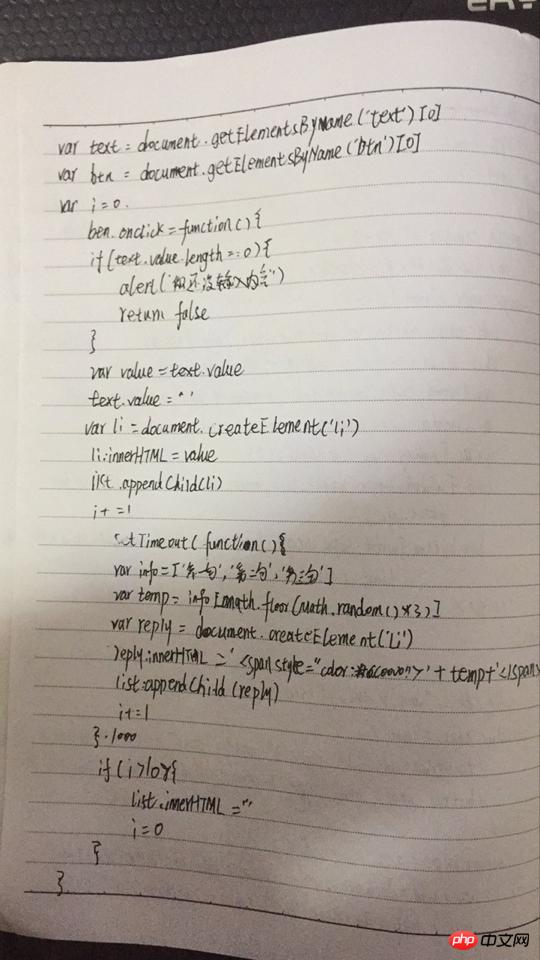 var text = document.getElementsByName('text')[0]
var btn = document.getElementsByName('btn')[0]
var i=0.
ben.onclick=function(){
if(text.value.length==0){
alert("还没输入内容")
return false
}
var value=text.value
text.value=""
var li=document.createElement('li')
li.innerHTML=value
list.appendChild(li)
i+=1
setTimeout(function(){
var info=['第一句','第二句','第三句']
var temp=info[math.floor(math.random()*3)]
var reply = document.createElement('li')
reply.innerHTML='<span style="color:">'+temp+'</span>
list.appendChild(reply)
i+=1
}.1000
if(i>10){
list.innerHTML=""
i=0
}
}
php 中文网